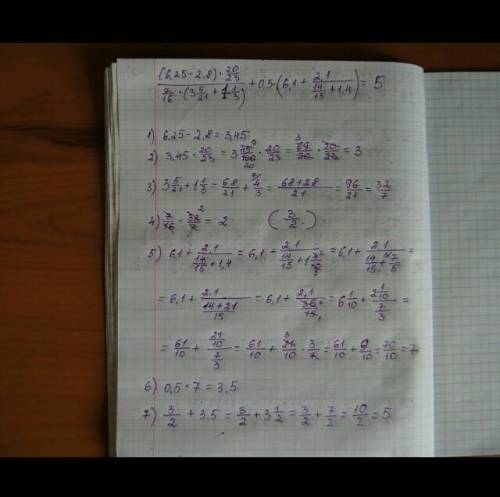 (6,25-2,8)·20/23 / 7/16·(3 5/21+1 1/3) + 0,5·(6,1+ 2,1/(14/15+1,4)) = 5
1) 6,25-2,8=3,45
2) 3,45·20/23=3 45/100·20/23=69/20·20/23=3
3) 3 5/21+1 1/3=68/21+4/3=68+28/21=96/21=32/7
4) 7/16·32/7=2 (3/2)
5) 6,1+ 2,1/(14/15+1,4)=6,1+ 2,1/(14/15+1 4/10)=6,1+ 2,1/(14/15+7/5)=
=6,1+ 2,1/(14+21/15)=6,1+ 2,1/(35/15)=6 1/10+ 2 1/10/(7/3)=
=61/10+ 21/10/(7/3)=61/10+21/10·3/7=61/10+9/10=70/10=7
6) 0,5·7=3,5
7) 3/2+3,5=3/2+3 1/2=3/2+7/2=10/2=5